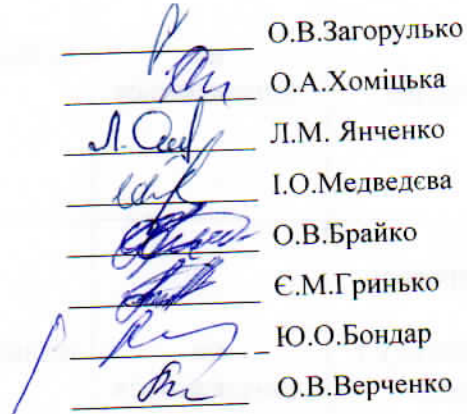 О.В.Загорулько
О.А.Хоміцька
Л.М. Янченко
І.О.Медведєва
О.В.Брайко
Є.М.Гринько
Ю.О.Бондар
О.В.Верченко